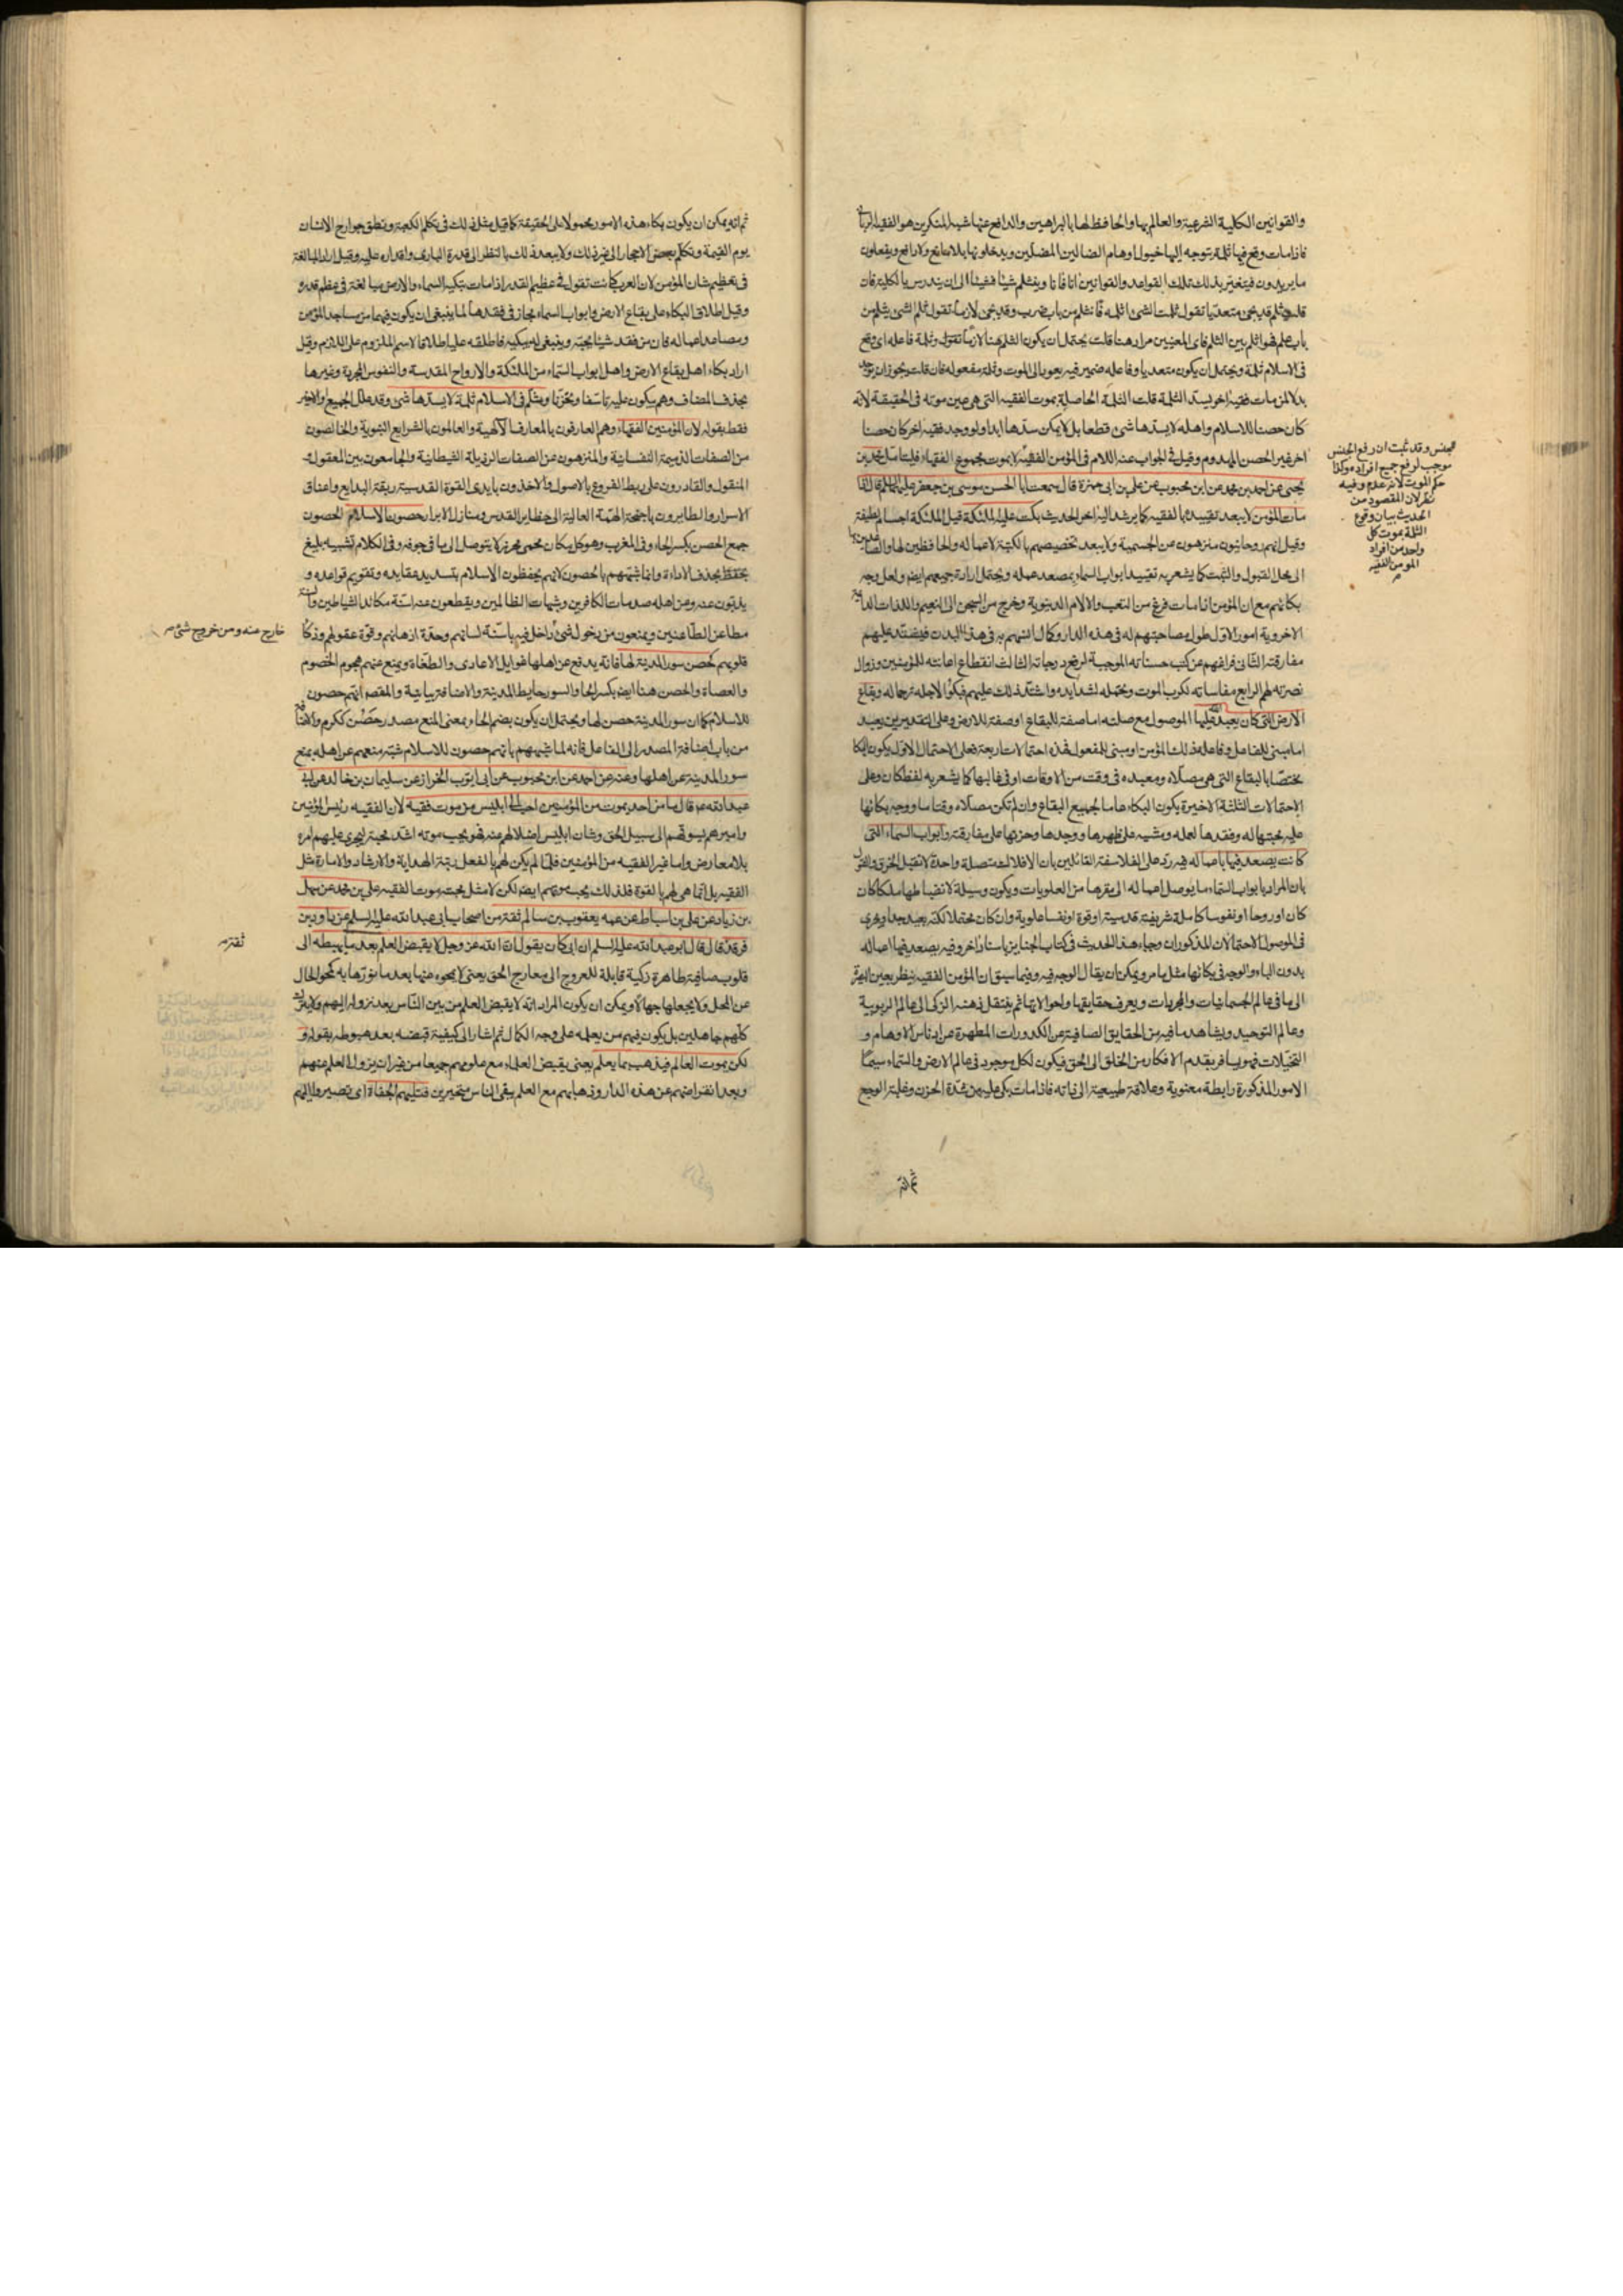 والقوانين الكلية الشرعية والعالم بها والحافظ لها بالبراهين والدافع عنها شبه المنكرين هو الفقيه
فاذا مات وقع فيها ثلمة يتوجه اليها خيول اوهام الضالين المضلين ويدخلونها بلا مانع ولا رافع ويفعلون
ما يريدون فيتغير بذلك تلك القواعد والقوانين انا فانا وينثلم شيئا فشيئا الى ان يندرس بالكلية فان
قلت ثلم قد يجئ متعديا تقول ثلمت الشئ اثلمه فانثلم من باب ضرب وقد يجئ لازما تقول ثلم الشئ يثلم من
باب علم فهو اثلم بين الثلم فاى المعنيين مراد هنا قلت يحتمل ان يكون الثلم هنا لازما تقول وثلمة فاعله اى وقع
فى الاسلام ثلمة ويحتمل ان يكون متعديا وفاعله ضمير فيه يعود الى الموت وثلمة مفعوله فان قلت يجوز ان يوجد
بدلا لمن مات فقيه اخر يسد الثلمة قلت الثلمة الحاصلة بموت الفقيه التى هى عين موته فى الحقيقة لانه
كان حصنا للاسلام واهله لا يسدها شئ قطعا بل لا يمكن سدها ابدا ولو وجد فقيه اخر كان حصنا
اخر غير الحصن المهدوم وقيل فى الجواب عنه اللام فى المؤمن الفقيه لا بموت مجموع الفقهاء فليتامل محمد بن
يحيى عن احمد بن محمد عن ابن محبوب عن على بن ابى حمزة قال سمعت ابا الحسن موسى بن جعفر عليهما السلم قال اذا
مات المؤمن لا يبعد تقييده بالفقيه كما يرشد اليه اخر الحديث بكت عليه الملئكة قيل الملئكة اجسام لطيفة
وقيل انهم روحانيون منزهون عن الجسمية ولا يبعد تخصيصهم بالكتبة لاعماله والحافظين لها
الى محل القبول والثبت كما يشعر به تقييد ابواب السماء بمصعد عمله ويحتمل ارادة جميعهم ايضا ولعل وجه
بكائهم مع ان المؤمن اذا مات فرغ من التعب والالام الدنيوية وخرج من السجن الى النعيم واللذات
الاخروية امور الاول طول مصاحبتهم له فى هذه الدار وكمال انسهم به فى هذه المدت فيشتد عليهم
مفارقته الثانى فراغهم عن كتب حسناته الموجبة لرفع درجاته الثالث انقطاع اعانته للمؤمنين وزوال
نصرته لهم الرابع مقاساته لكرب الموت وتحمله لشدايده واشتد ذلك عليهم فبكوا لاجله ترحما له وبقاع
الارض التى كان يعبد الله عليها الموصول مع صلته اما صفة للبقاع او صفة للارض وعلى التقديرين يعبد
اما مبنى للفاعل وفاعله ذلك المؤمن او مبنى للمفعول فهذه احتمالات اربعة فعلى الاحتمال الاول يكون البكا
مختصا بالبقاع التى هى مصلاه ومعبده فى وقت من الاوقات او فى غالبها كما يشعر به لفظ كان وعلى
الاحتمالات الثلثة الاخيرة يكون البكاء عاما لجميع البقاع وان لم تكن مصلاه وقتا ما ووجه بكائها
عليه محبتها له وفقدها لعمله ومشيه على ظهرها ووجدها وحزنها على مفارقته وابواب السماء التى
كانت يصعد فيها باعماله فيه رد على الفلاسفة القائلين بان الافلاك متصلة واحدة لا تقبل الخرق
بان المراد بابواب السماء ما يوصل اعماله الى مقرها من العلويات ويكون وسيلة لانضباطها ملكا كان
كان او روحا او نفوسا كاملة شريفة قدسية او قوة او نفسا علوية وان كان محتملا لكنه بعيد جدا ويجرى
فى الموصول الاحتمالان المذكوران وجاء هذا الحديث فى كتاب الجنايز باسناد اخر وفيه يصعد فيها اعماله
بدون الباء والوجه فى بكائها مثل ما مر ويمكن ان يقال الوجه فيه وفيما سبق ان المؤمن الفقيه ينظر بعين البصيرة
الى ما فى عالم الجسمانيات والمجردات ويعرف حقايقها واحوالاتها ثم ينتقل ذهنه الزكى الى عالم الربوبية
وعالم التوحيد ويشاهد ما فيه من الحقايق الصافية عن الكدورات المطهرة عن ادناس الاوهام و
التخيلات فهو يسافر بقدم الافكار من الخلق الى الحق فيكون لكل موجود فى عالم الارض والسماء سيما
الامور المذكورة رابطة معنوية وعلاقة طبيعية الى ذاته فاذا مات بكى عليه من شدة الحزن وغلبة الوجع
ثم انه
الجنس وقد ثبت ان رفع الجنس
موجب لرفع جميع افراده وكذا
حكم الموت لانه عدم وفيه
نظر لان المقصود من
الحديث بيان وقوع
الثلمة بموت كل
واحد من افراد
المومن الفقيه
ثم انه يمكن ان يكون بكاء هذه الامور محمولا على الحقيقة كما قيل مثل ذلك فى تكلم الكعبة ونطق جوارح الانسان
يوم القيمة وتكلم بعض الاحجار الى غير ذلك ولا يبعد ذلك بالنظر الى قدرة البارى واقداره عليه وقيل اراد المبالغة
فى تعظيم شان المؤمن لان العرب كانت تقول فى عظيم القدر اذا مات بكته السماء والارض مبالغة فى عظم قدره
وقيل اطلاق البكاء على بقاع الارض وابواب السماء مجاز فى فقدهما لما ينبغى ان يكون فيهما من مساجد المؤمن
ومصاعد اعماله فان من فقد شيئا يحبه وينبغى له يبكيه فاطلقه عليه اطلاقا لاسم الملزوم على اللازم وقيل
اراد بكاء اهل بقاع الارض واهل ابواب السماء من الملئكة والارواح المقدسة والنفوس المجردة وغيرها
بحذف المضاف وهم يبكون عليه تاسفا وتحزنا وثلم فى الاسلام ثلمة لا يسدها شئ وقد علل الجميع والاخير
فقط بقوله لان المؤمنين الفقهاء وهم العارفون بالمعارف الالهية والعالمون بالشرايع النبوية والخالصون
من الصفات الذميمة النفسانية والمنزهون عن الصفات الرذيلة الشيطانية والجامعون بين المعقول و
المنقول والقادرون على ربط الفروع بالاصول والاخذون بايدى القوة القدسية ربقة البدايع واعناق
الاسرار والطايرون باجنحة الهمة العالية الى حظاير القدس ومنازل الابرار حصون الاسلام الحصون
جمع الحصن بكسر الحاء وفى المغرب وهو كل مكان محمى محرز لا يتوصل الى ما فى جوفه وفى الكلام تشبيه بليغ
بحذف الاداة وانما شبههم بالحصون لانهم يحفظون الاسلام بتسديد عقايده وتقويم قواعده و
يذبون عنه وعن اهله صدمات الكافرين وشبهات الظالمين ويقطعون عنه اسنة مكائد الشياطين
مطاعن الطاعنين ويمنعون من دخول شئ داخل فيه باسنة لسانهم وحدة اذهانهم وقوة عقولهم وذكا
قلوبهم كحصن سور المدينة لها فانه يدفع عن اهلها غوايل الاعادى والطغاة ويمنع عنهم هجوم الخصوم
والعصاة والحصن هنا ايضا بكسر الحاء والسور حايط المدينة والاضافة بيانية والمقصد انهم حصون
للاسلام كما ان سور المدينة حصن لها ويحتمل ان يكون بضم الحاء بمعنى المنع مصدر حصن ككرم
من باب اضافة المصدر الى الفاعل فانه لما شبههم بانهم حصون للاسلام شبه منعهم عن اهله بمنع
سور المدينة عن اهلها وعنه عن احمد عن ابن محبوب عن ابى ايوب الخراز عن سليمان بن خالد عن ابى
عبد الله ع قال ما من احد يموت من المؤمنين احب الى ابليس من موت فقيه لان الفقيه رئيس المؤمنين
واميرهم يسوقهم الى سبيل الحق وشان ابليس اضلالهم عنه فهو يحب موته اشد محبة ليجرى عليهم امره
بلا معارض واما غير الفقيه من المؤمنين فلما لم يكن لهم بالفعل رتبة الهداية والارشاد والامارة مثل
الفقيه بل انما هى لهم بالقوة فلذلك يحب موتهم ايضا لكن لا مثل محبته موت الفقيه على بن محمد عن سهل
بن زياد عن على بن اسباط عن عمه يعقوب بن سالم ثقة من اصحاب ابى عبد الله عليه السلم عن داود بن
فرقد قال قال ابو عبد الله عليه السلم ان ابى كان يقول ان الله عز وجل لا يقبض العلم بعد ما يهبطه الى
قلوب صافية طاهرة زكية قابلة للعروج الى معارج الحق يعنى لا يمحوه عنها بعد ما نورها به كمحو الحال
عن المحل ولا يجعلها جهالا ويمكن ان يكون المراد انه لا يقبض العلم من بين الناس بعد نزوله اليهم
كلهم جاهلين بل يكون فيهم من يعلمه على وجه الكمال ثم اشار الى كيفية قبضه بعد هبوطه بقوله و
لكن يموت العالم فيذهب بما يعلم يعنى يقبض العلماء مع علومهم جميعا من غير ان يزول العلم عنهم
وبعد انقراضهم عن هذه الدار وذهابهم مع العلم يبقى الناس متحيرين فتليهم الجفاة اى تصير
خارج عنه ومن خروج شئ
ثقة